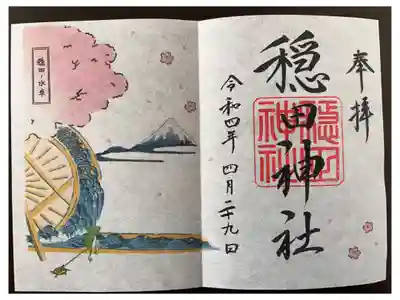 奉拝
穏田神社
令和四年 四月二十九日
穏田ノ水車